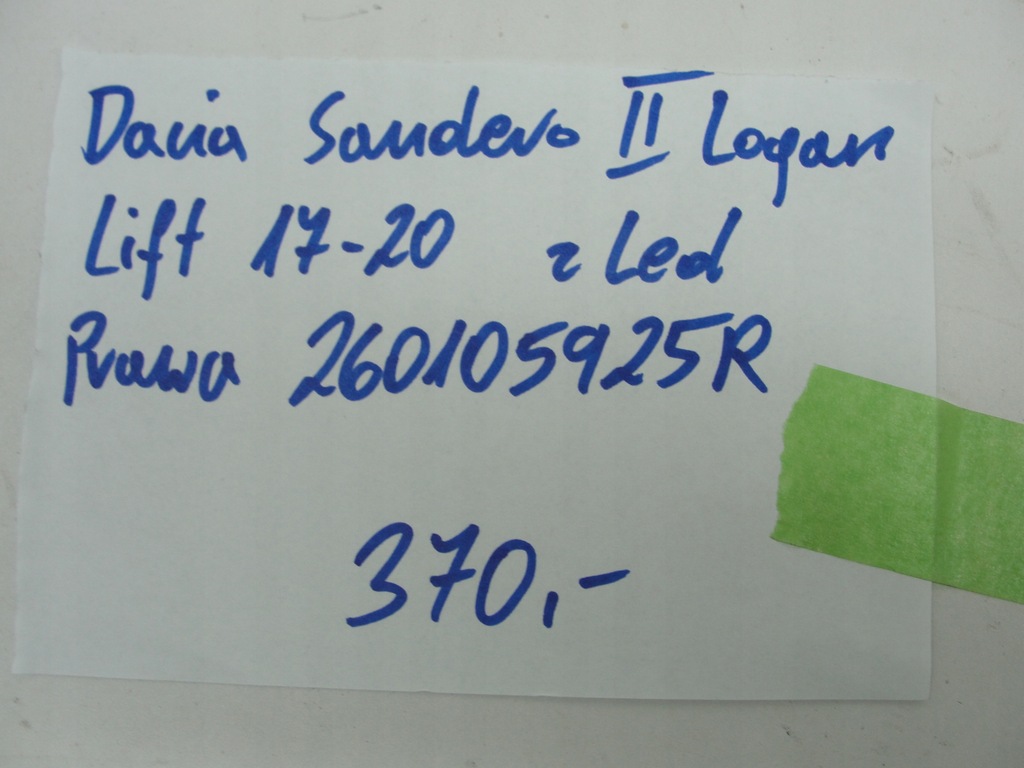 Dacia Sandero II Logan
Lift 17-20 z Led
Prawa 260105925R
370,-